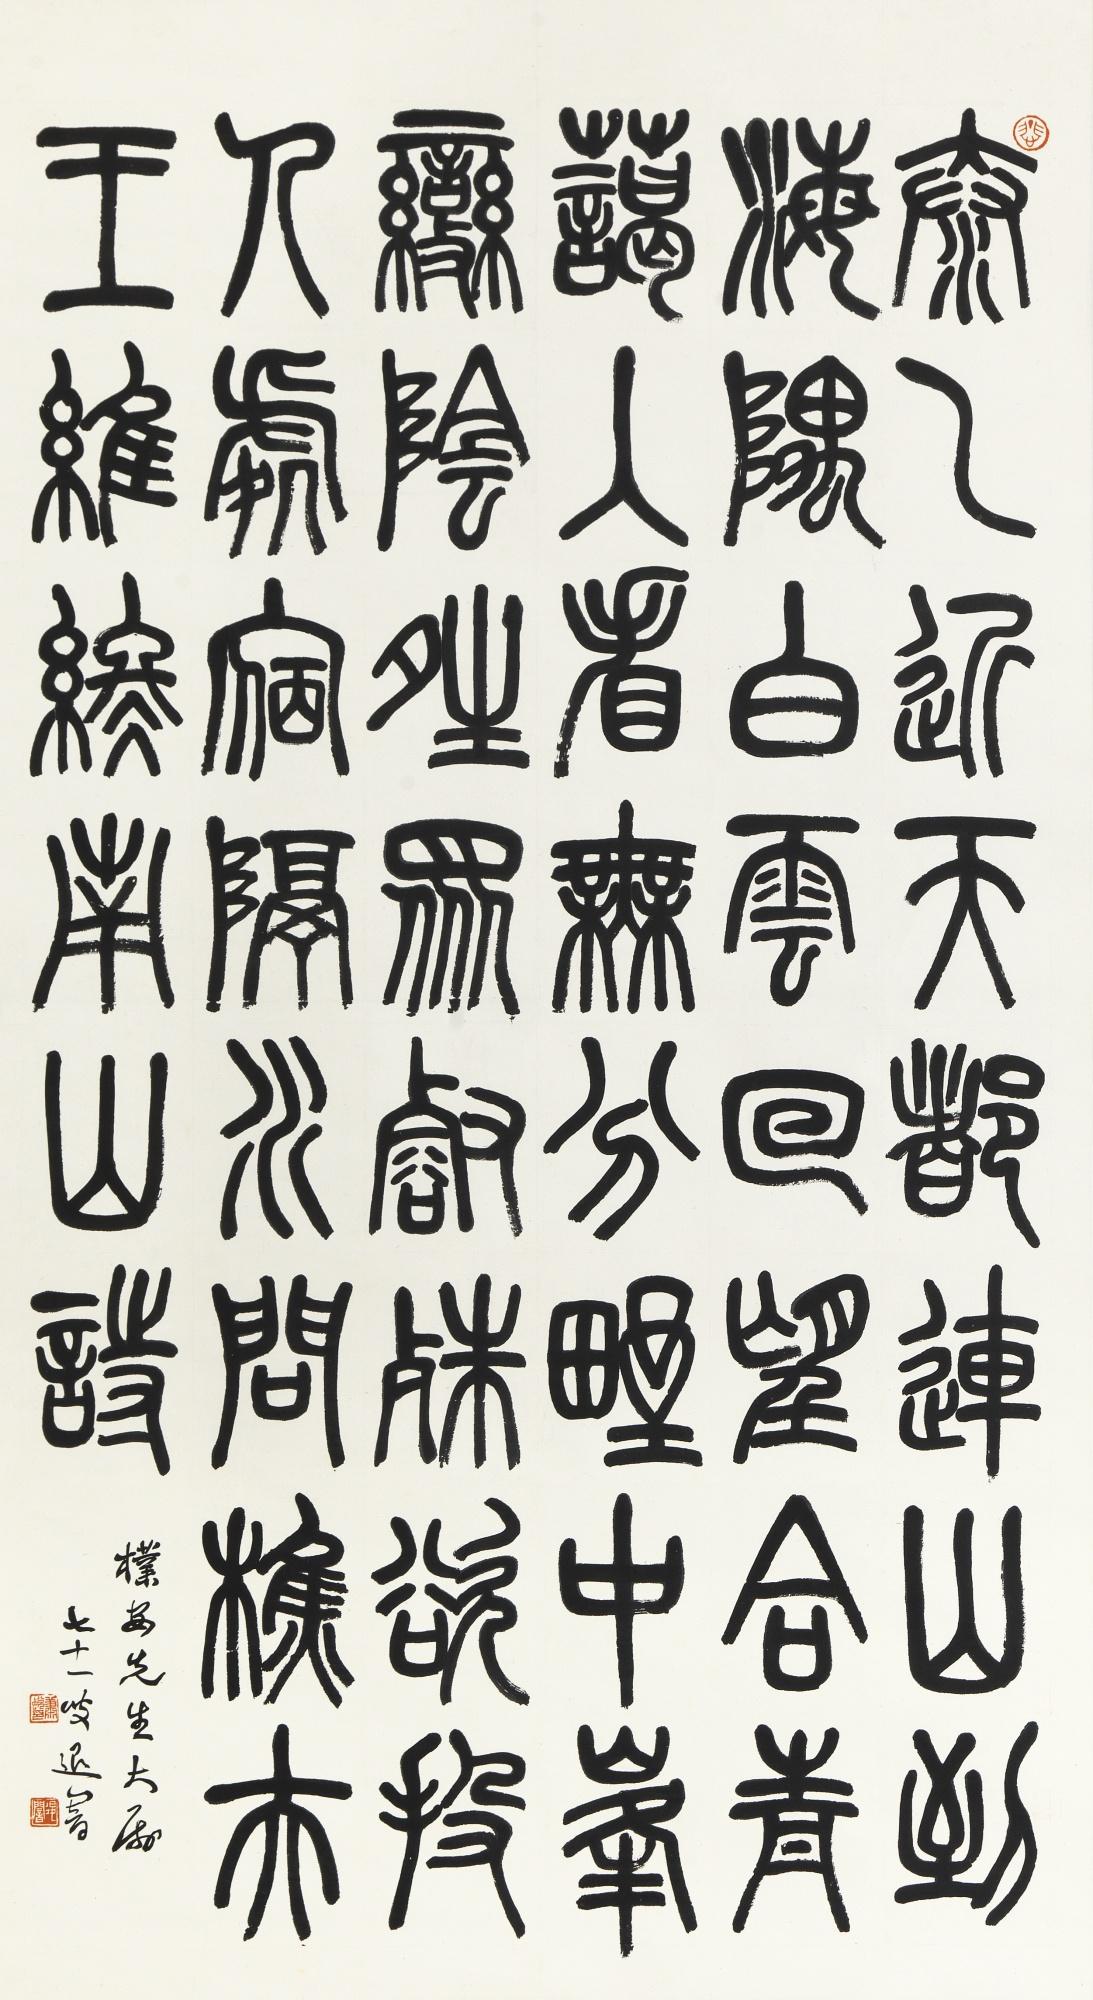 泰乙近天都連山到
海隅白雲回望合青
藹入看無分野中峯
變陰晴眾壑殊欲投
人處宿隔水問樵夫
王維終南山詩
樸安先生大屬
七十一叟退闇